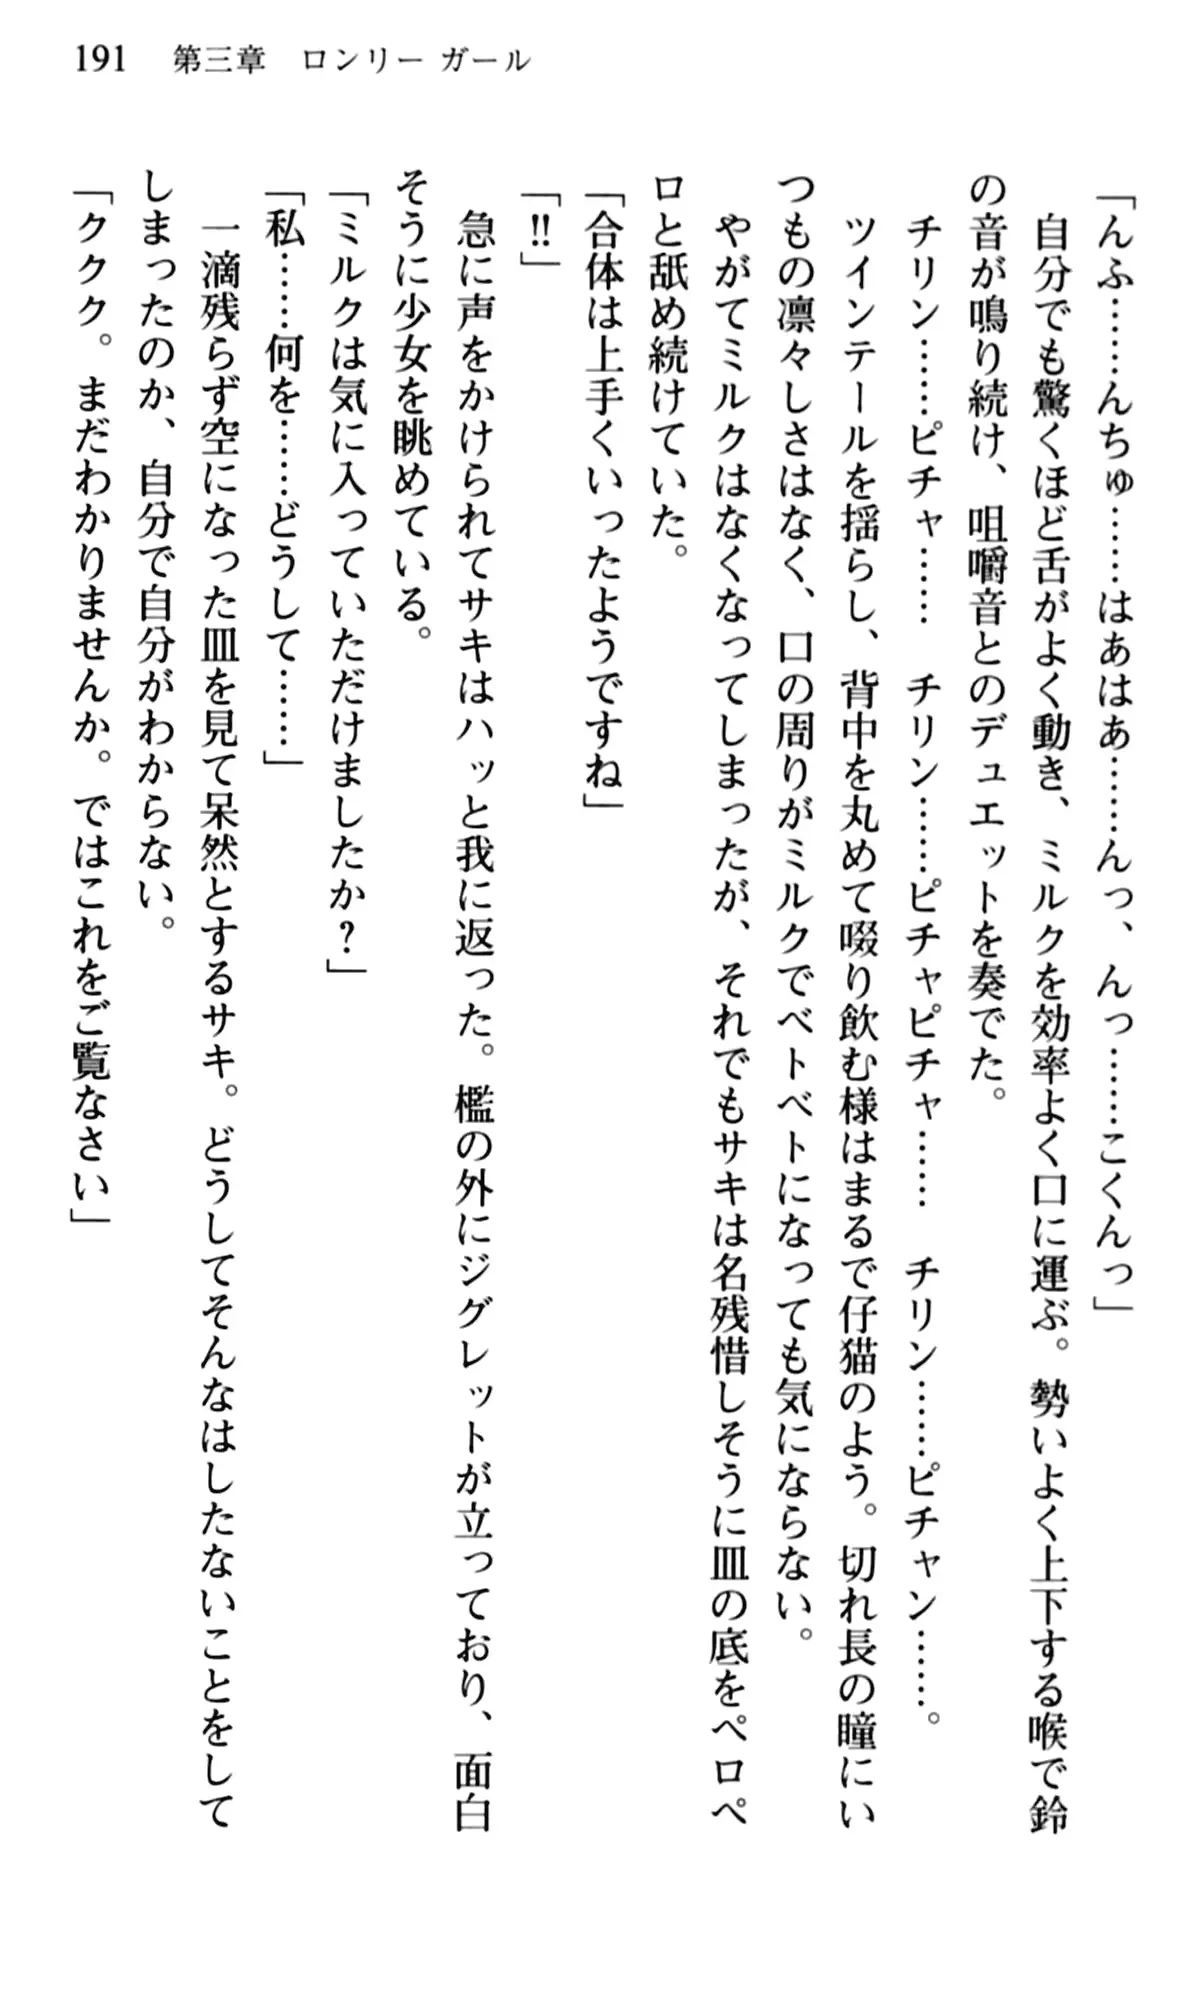 191　第三章　ロンリー ガール
「んふ……んちゅ……はあはあ……んっ、んっ……こくんっ」
　自分でも驚くほど舌がよく動き、ミルクを効率よく口に運ぶ。勢いよく上下する喉で鈴
の音が鳴り続け、咀嚼音とのデュエットを奏でた。
　チリン……ピチャ……　チリン……ピチャピチャ……　チリン……ピチャン……。
　ツインテールを揺らし、背中を丸めて啜り飲む様はまるで仔猫のよう。切れ長の瞳にい
つもの凛々しさはなく、口の周りがミルクでベトベトになっても気にならない。
　やがてミルクはなくなってしまったが、それでもサキは名残惜しそうに皿の底をペロペ
ロと舐め続けていた。
「合体は上手くいったようですね」
「!!」
　急に声をかけられてサキはハッと我に返った。檻の外にジグレットが立っており、面白
そうに少女を眺めている。
「ミルクは気に入っていただけましたか？」
「私……何を……どうして……」
　一滴残らず空になった皿を見て呆然とするサキ。どうしてそんなはしたないことをして
しまったのか、自分で自分がわからない。
「ククク。まだわかりませんか。ではこれをご覧なさい」